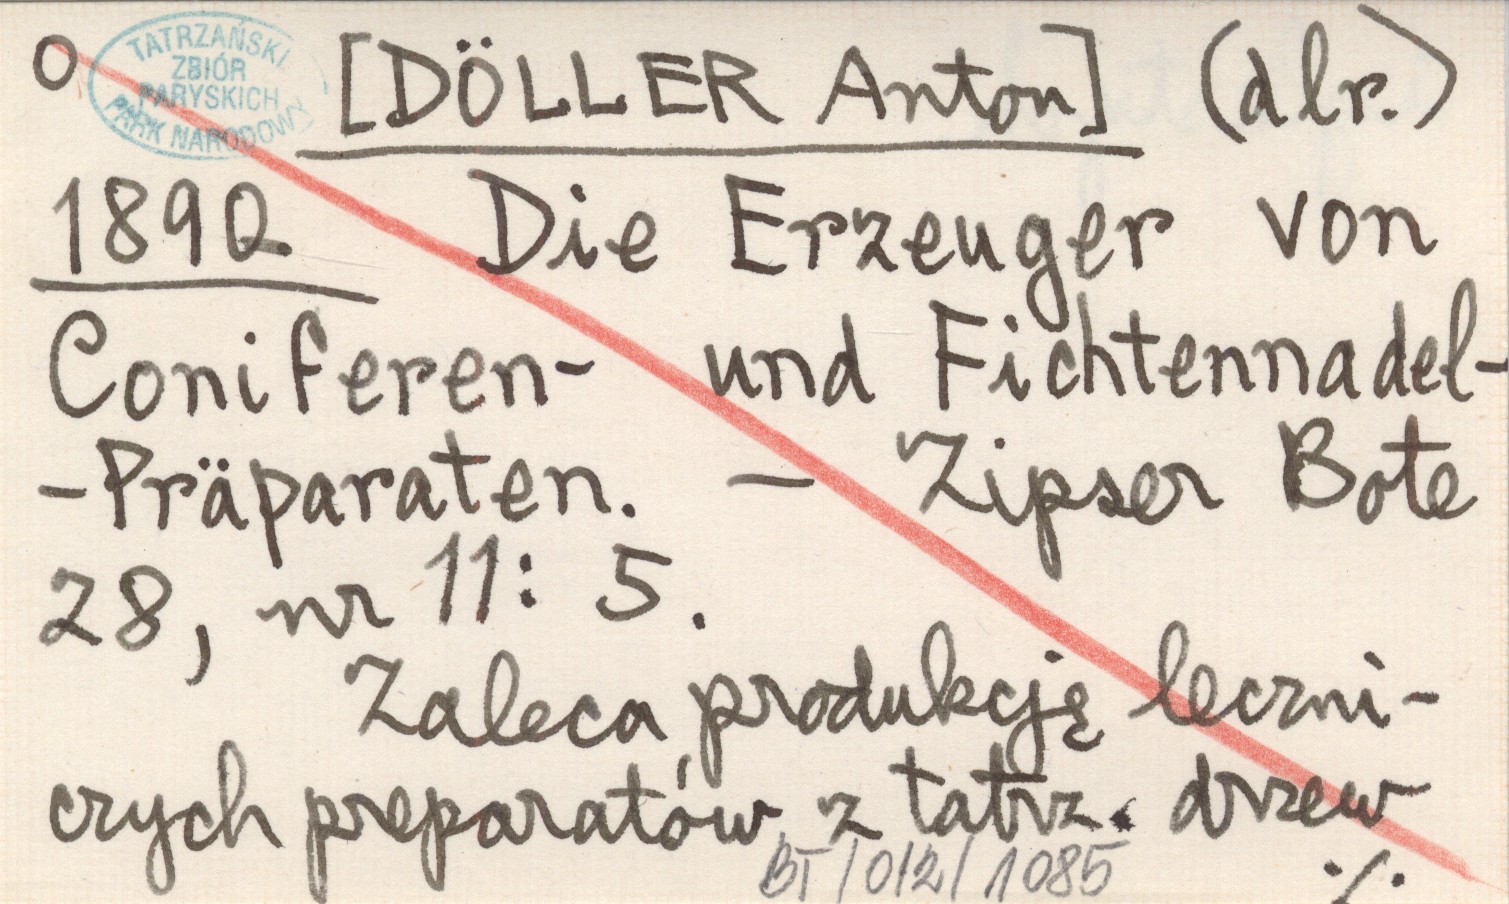 O TATRZAŃSKI ZBIÓR PARYSKICH PARK NARODOWY [DÖLLER Anton] (dlr.)
1890 Die Erzeuger von
Coniferen- und Fichtennadel-
-Präparaten. — Zipser Bote
28, nr 11: 5.
Zaleca produkcję leczni-
czych preparatów z tatrz. drzew
BT/012/1085 ./.